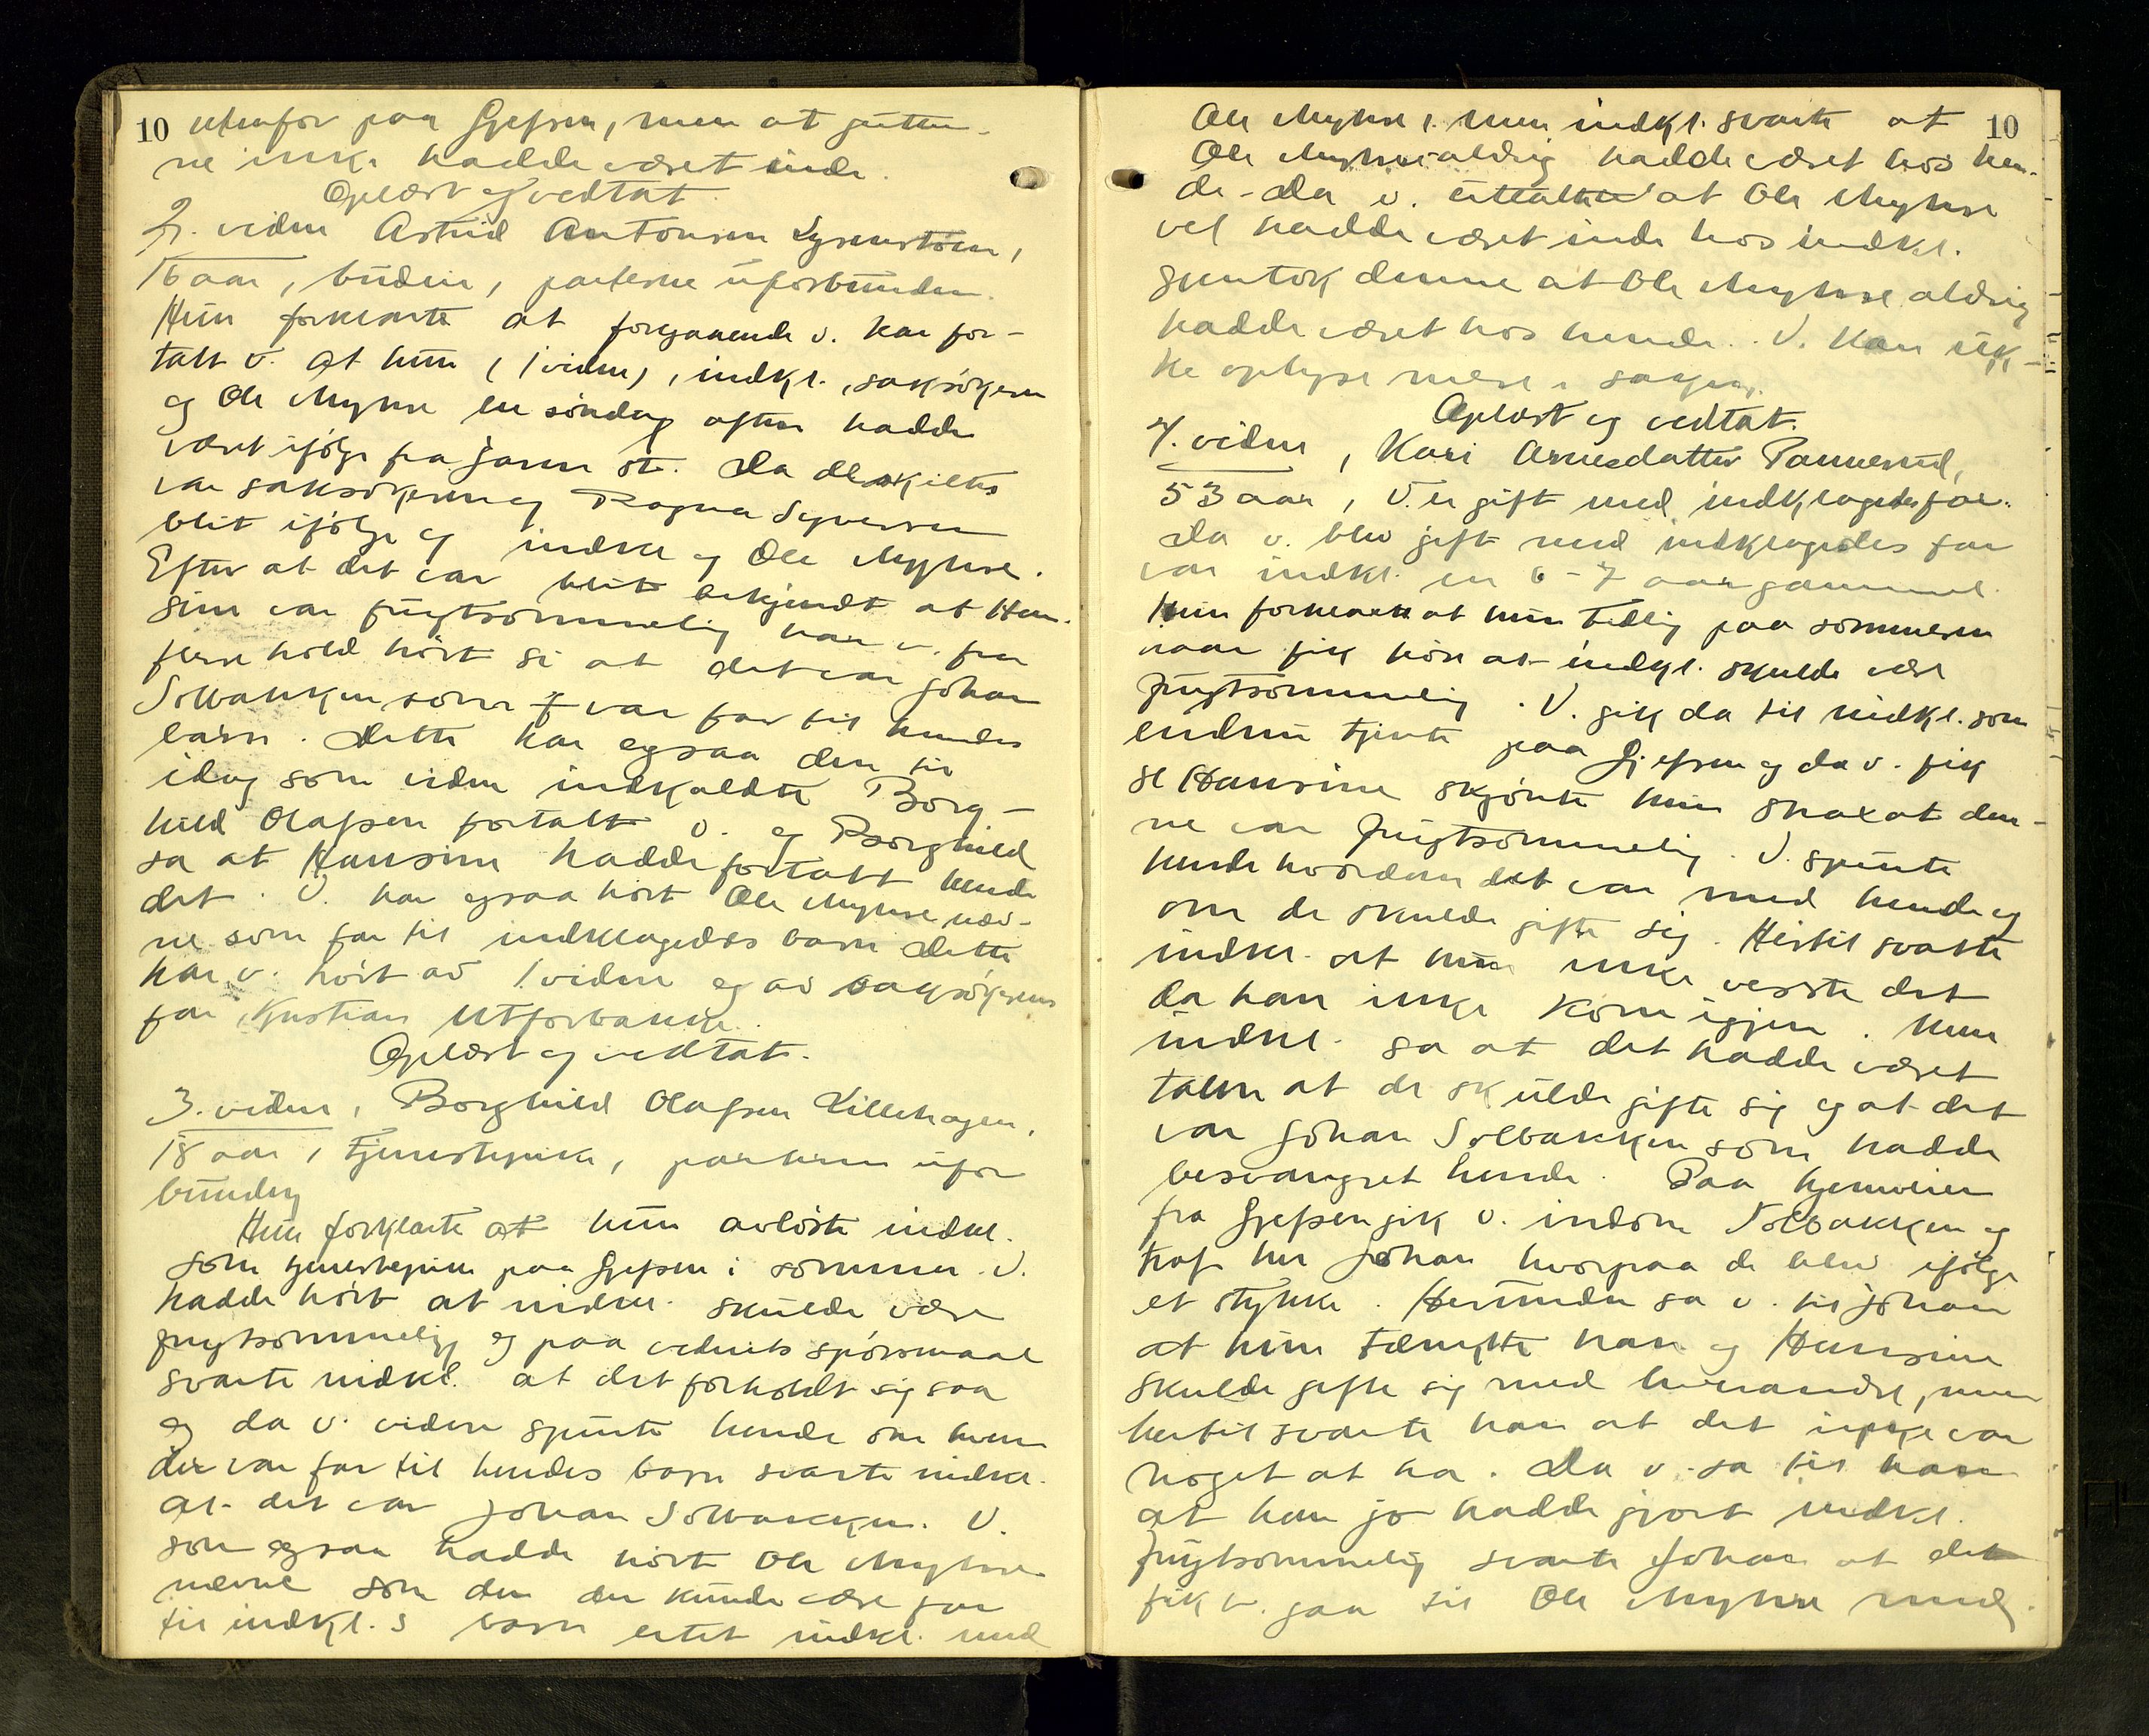 10 utenfor paa Gjefsen, men at gutte-
ne ikke hadde været inde.
Oplæst og vedtat.
2. vidne Astrid Antonsen Lysenstøen,
16 aar, budeie, parterne uforbunden.
Hun forklarte at foregaaende v. har for-
talt v. at hun (1 vidne), indkl., saksökeren
og Ole Myhre en söndag aften hadde
været ifölge fra Jaren st. Da de skiltes
var saksökeren og Ragna Syversen
blit ifölge og indkl. og Ole Myhre.
Efter at det var blit bekjendt at Han-
sine var frugtsommelig har v. fra
flere hold hört si at det var Johan
Solbakken som var far til hendes
barn. Dette har ogsaa den til
idag som vidne indkaldte Borg-
hild Olafsen fortalt v. og Borghild
sa at Hansine hadde fortalt hende
det. V. har ogsaa hört Ole Myhre næv-
ne som far til indklagedes barn dette
har v. hört av 1 vidne og av saksökerens
far Kristian
Oplæst og vedtat.
3. vidne, Borghild Olafsen Lillehagen,
18 aar, tjenestepike, parterne ufor
bunden
Hun forklarte at hun avlöste indkl.
som tjenestepike paa Gjefsen i sommer. V.
hadde hört at indkl. skulde være
frugtsommelig og paa vidnets spörsmaal
svarte indkl. at det forholdt sig saa
og da v. videre spurte hende om hvem
der var far til hendes barn svarte indkl.
at det var Johan Solbakken. V.
som ogsaa hadde hört Ole Myhre
nævne som den der kunde være far
til indkl.s barn ertet indkl. med
Ole Myhre, men indkl. svarte at 10
Ole Myhre aldrig hadde været hos hen-
de. Da v. uttalte at Ole Myhre
vel hadde været inde hos indkl.
gjentok denne at Ole Myhre aldrig
hadde været hos hende. V. kan ik-
ke oplyse mere i saken.
Oplæst og vedtat.
4. vidne, Kari Arnesdatter Pannerud,
53 aar, V. er gift med indklagedes far.
Da v. blev gift med indklagedes far
var indkl. en 6-7 aar gammel.
Hun forklarte at hun tidlig paa sommeren
iaar fik höre at indkl. skulde være
frugtsommelig. V. gik da til indkl. som
endnu tjente paa Gjefsen og da v. fik
se Hansine skjönte hun strax at den-
ne var frugtsommelig. V. spurte
hende hvordan det var med hende og
om de skulde gifte sig. Hertil svarte
indkl. at hun ikke visste det
da han ikke kom igjen. Men
indkl. sa at det hadde været
talen at de skulde gifte sig og at det
var Johan Solbakken som hadde
besvangret hende. Paa hjemveien
fra Gjefsen gik v. indom Solbakken og
traf her Johan hvorpaa de blev ifölge
et stykke. Herunder sa v. til Johan
at hun tænkte han og Hansine
skulde gifte sig med hverandre, men
hertil svarte han at det ikke var
noget at ha. Da v. sa til ham
at han jo hadde gjort indkl.
frugtsommelig svarte Johan at det
fik v. gaa til Ole Myhre med.